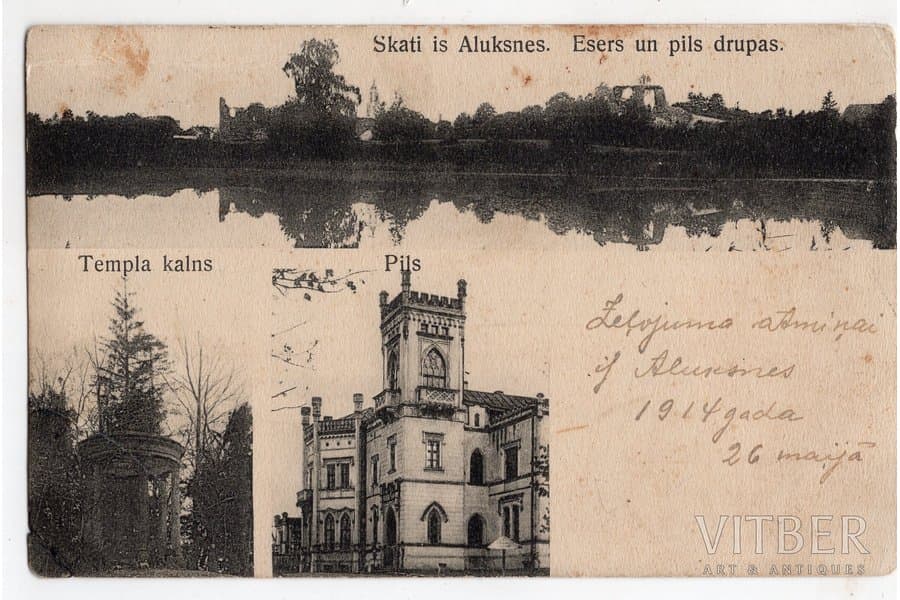 Skati is Aluksnes. Esers un pils drupas.
Templa kalns
Pils
Zeļojuma atmiņai
iſ Aluksnes
1914 gada
26 maijā
VITBER
ART & ANTIQUES